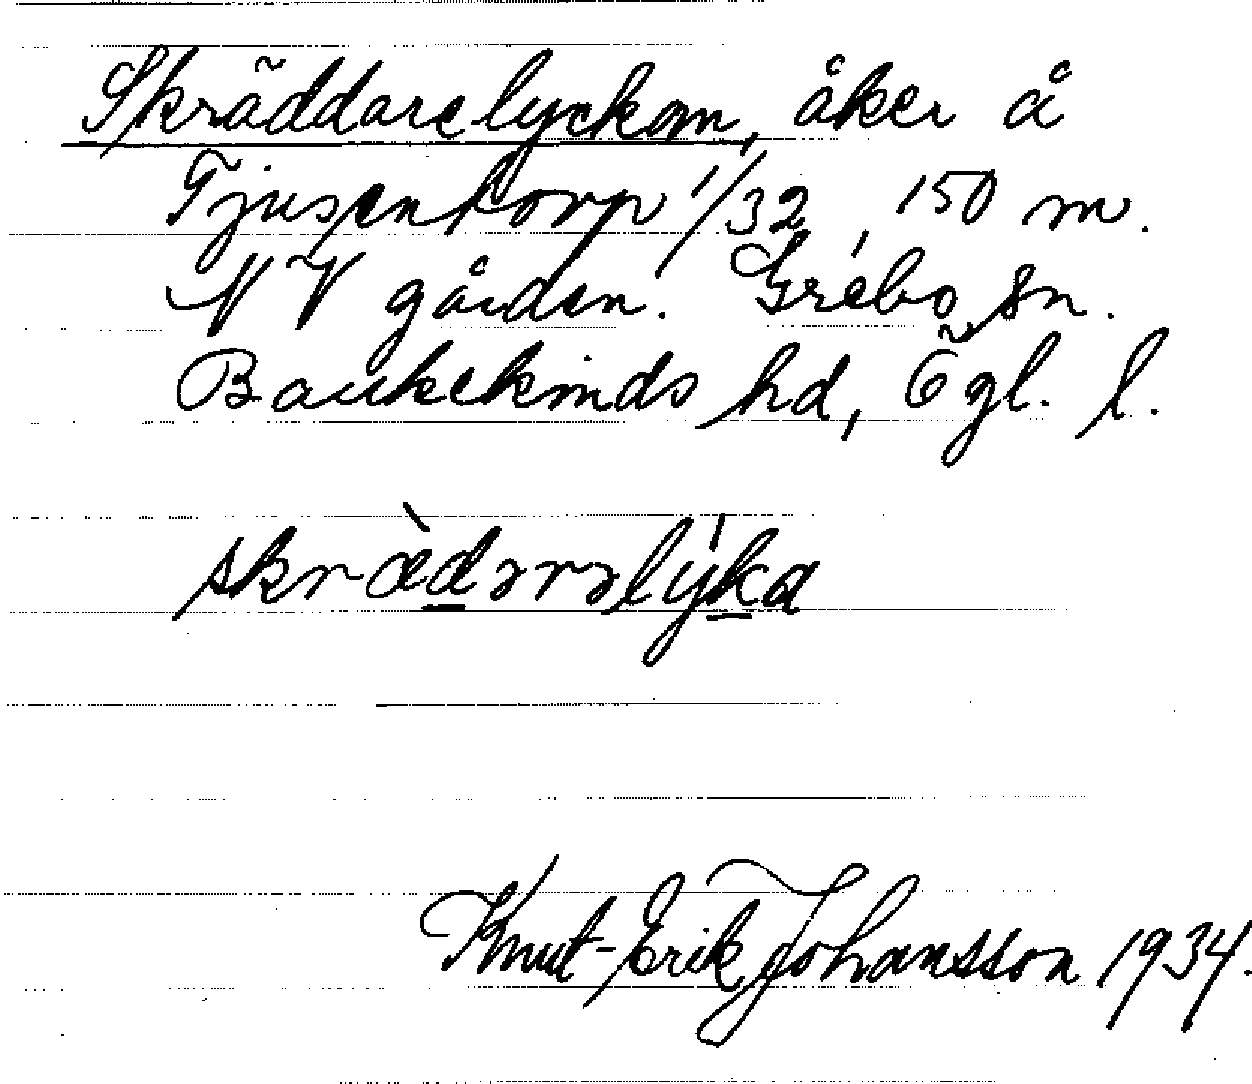 Skräddarelyckan, åker å
Tjusentorp 1/32, 150 m.
NV gården. Grebo sn.
Bankekinds hd, Ögl. l.
skrædàrəlýka
Knut-Erik Johansson 1934.